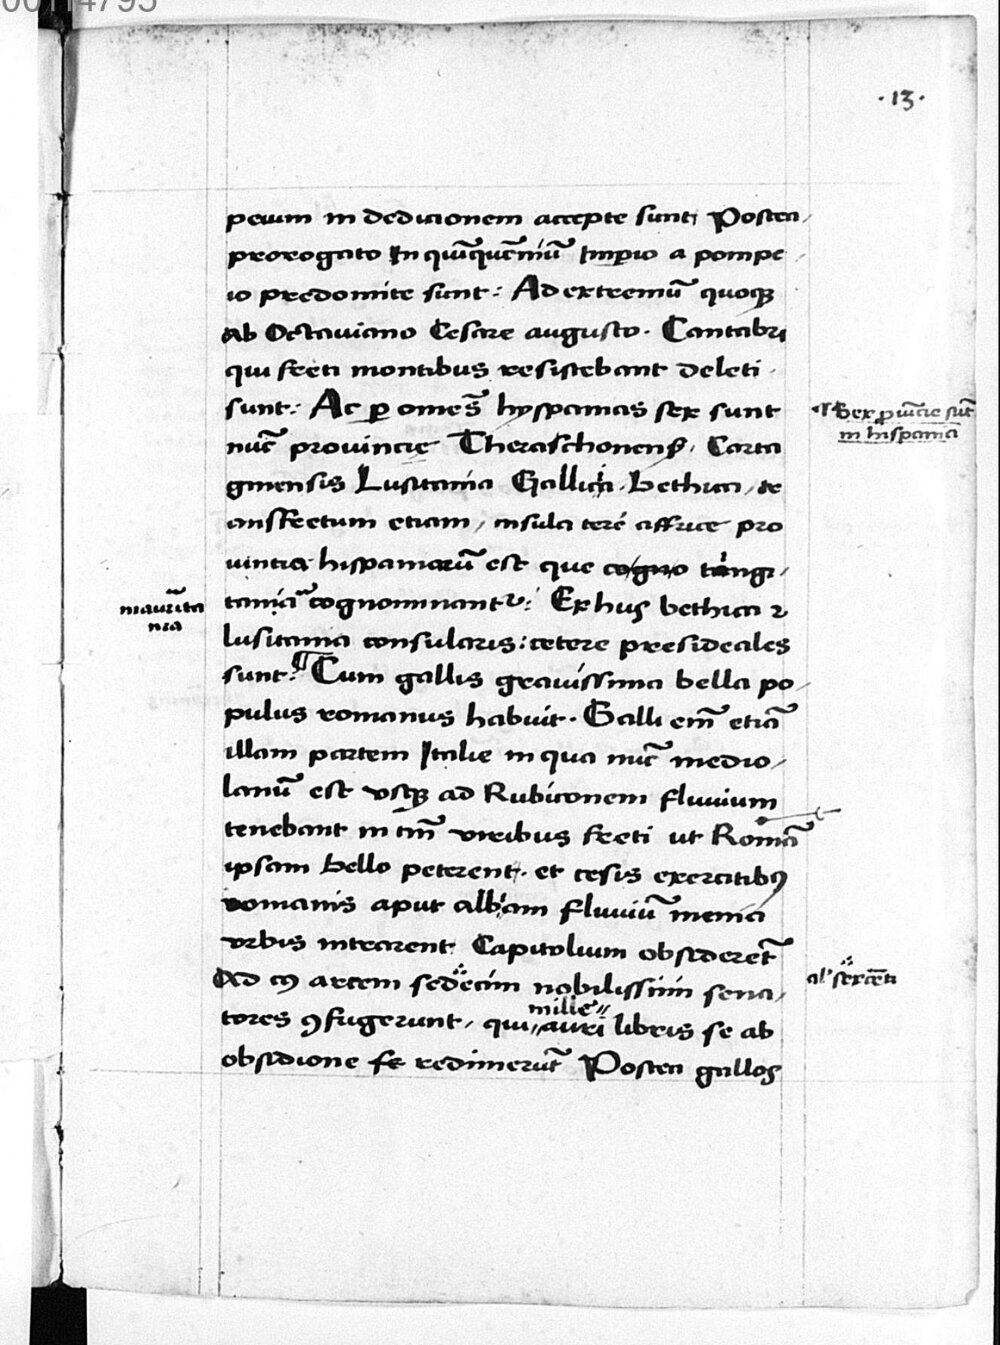 00114795
·13·
peium in dedicionem accepte sunt Postea
prorogato In quīquēniū Imperio a pompe
io predomite sunt: Ad extremū quoqꝫ
Ab Octaviano Cesare augusto. Cantabri
qui freti montibus resistebant deleti
sunt: Ac ꝑ omēs hyspanias sex sunt
nūc provincie Theraschonensꝭ. Carta
ginensis Lusitania Gallicia. Bethica, tr
ansfretum etiam, insula terē affrice pro
vintia hispaniarū est que cogno tingi
tania cognominantᷣ: Ex huis bethica ꝛ
lusitania consularis: cetere presideales
sunt: ¶ Cum gallis gravissima bella po
pulus romanus habuit. Galli em̄ etiā
illam partem Italie in qua nūc medio
lanū est usqꝫ ad Rubiconem fluvium
tenebant in tm̄ viribus freti ut Romā
ipsam bello peterent. et cesis exercitibꝰ
romanis aput albiam fluviū menia
urbis intrarent Capitolium obsiderēt
Ad cꝰ arcem sedecim nobilissimi sena
tores ꝯfugerunt, qui mille auri libris se ab
obsidione se redimerūt Postea gallos
¶ Sex ꝓvīcie sūt
in hispania
maurita
nia
al' sexcēti